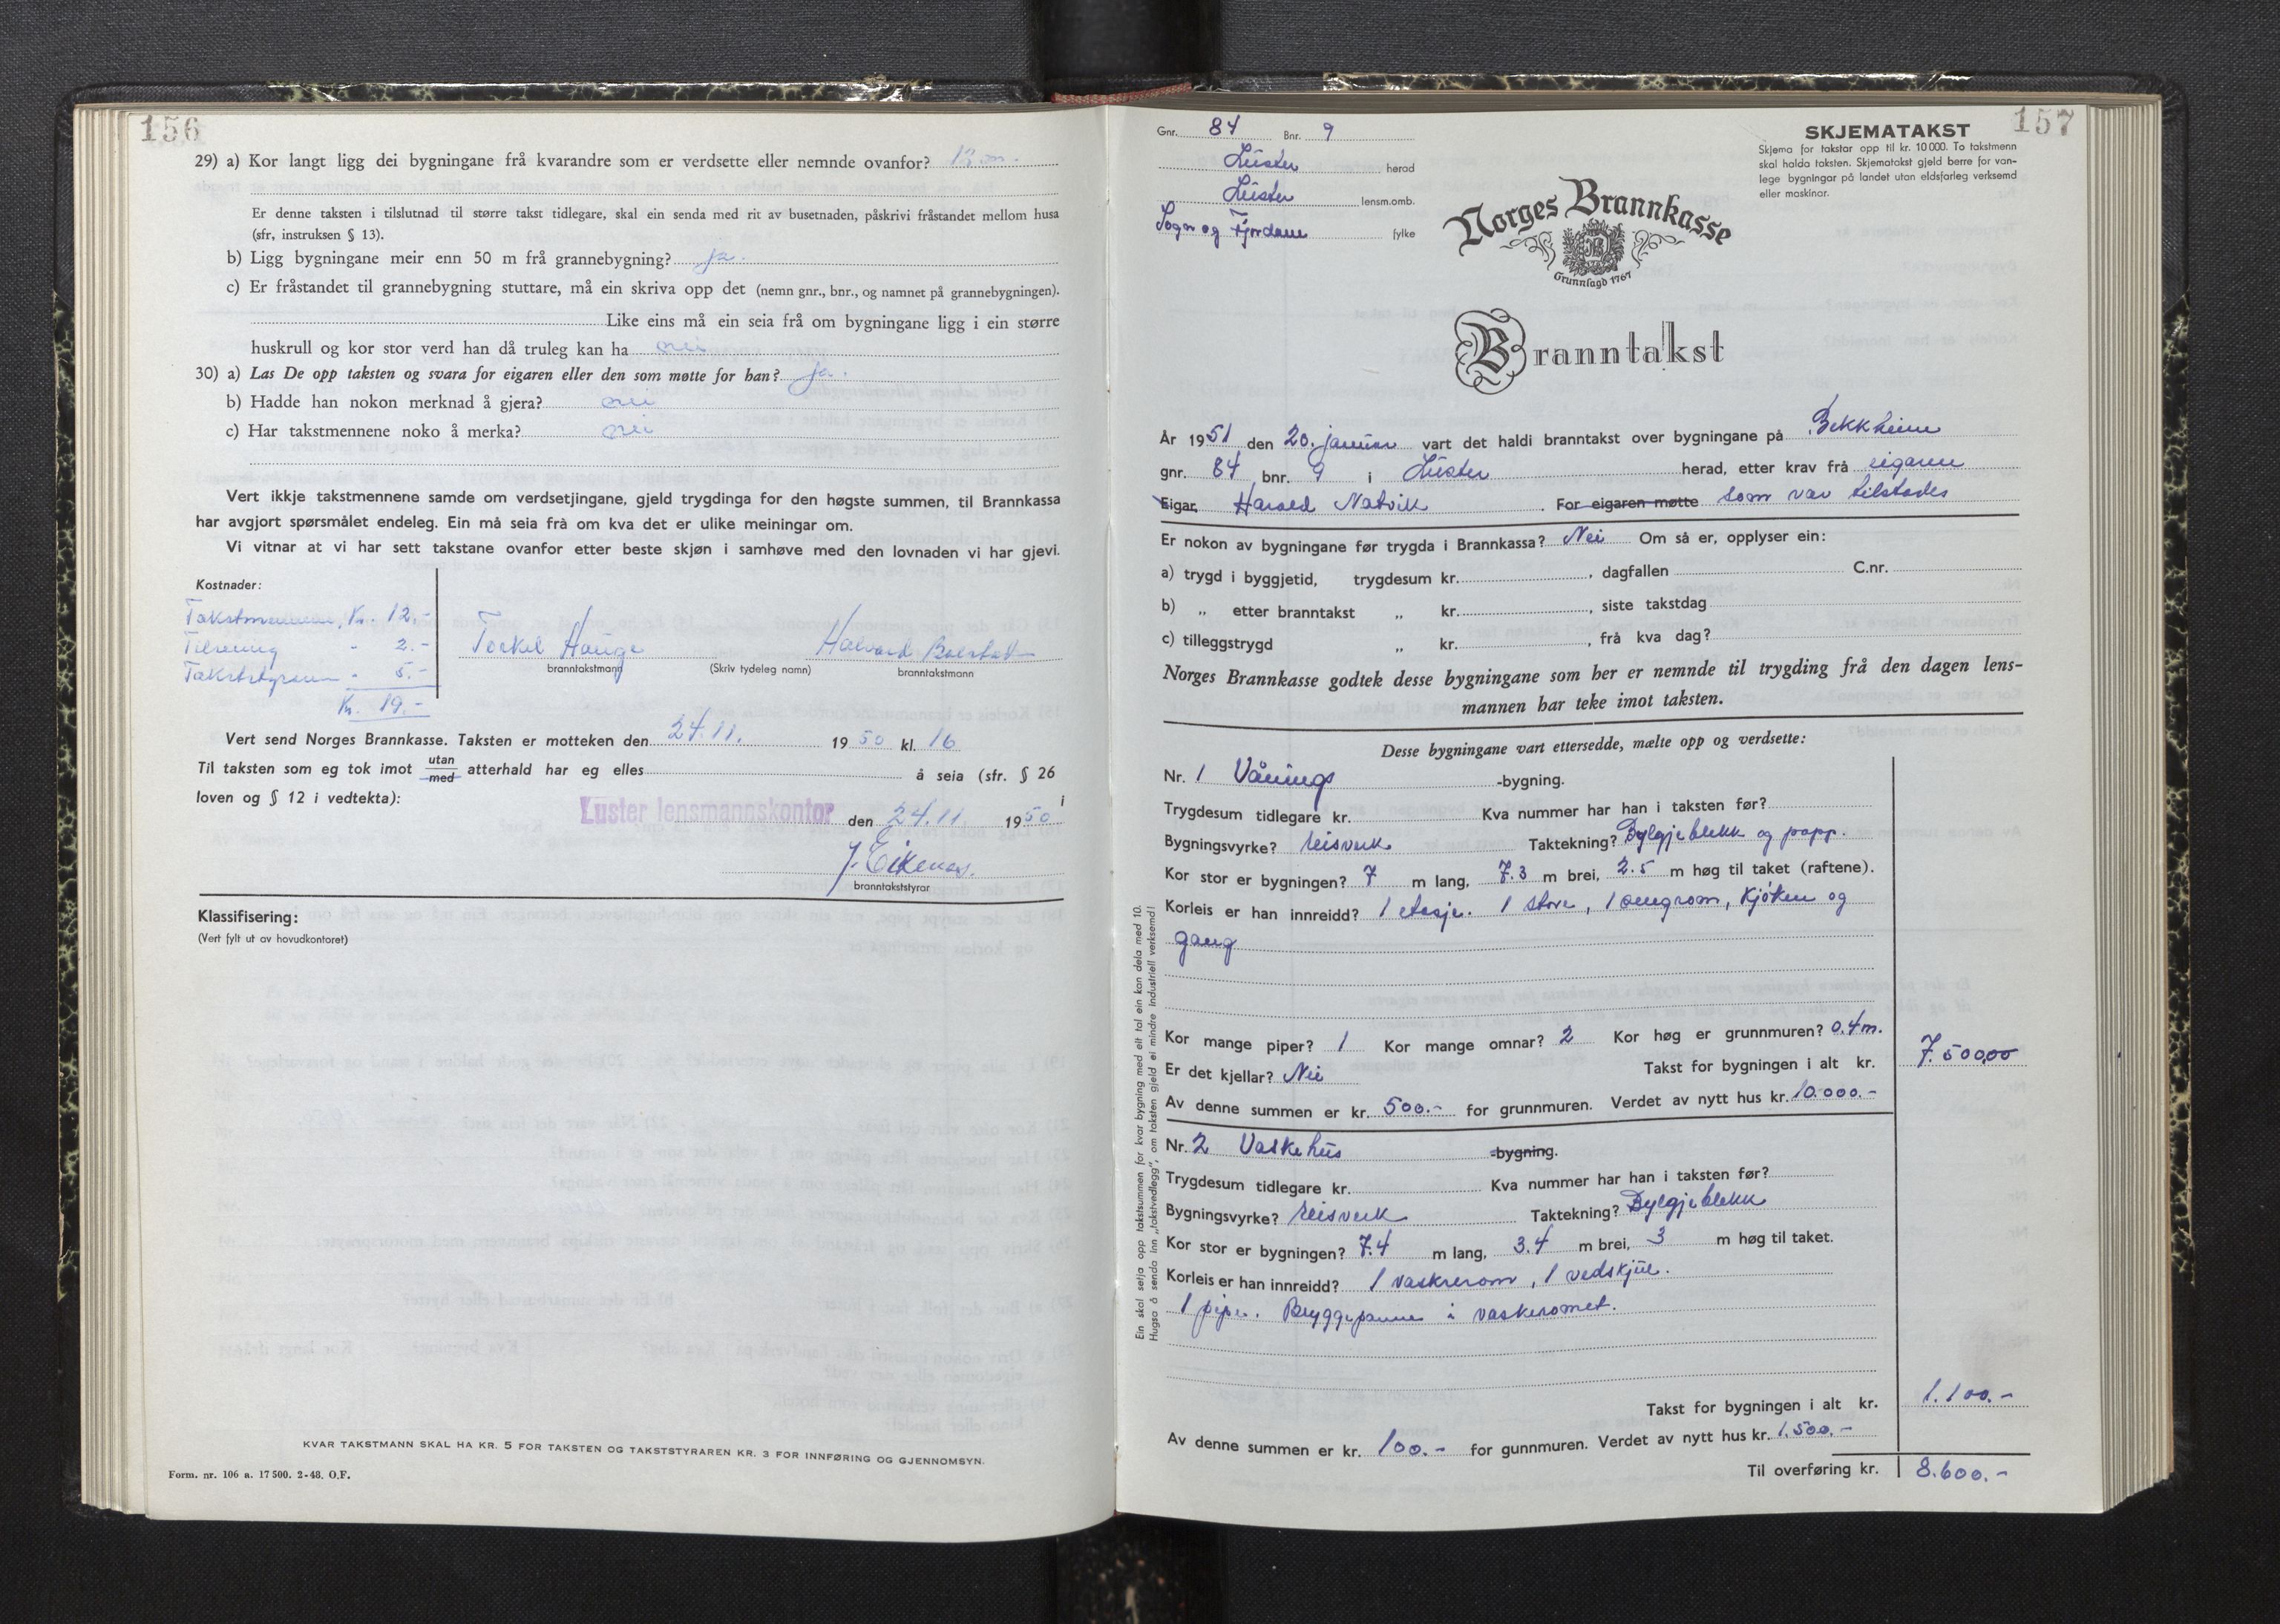 156
29) a) Kor langt ligg dei bygningane frå kvarandre som er verdsette eller nemnde ovanfor? 12 m.
Er denne taksten i tilslutnad til større takst tidlegare, skal ein senda med rit av busetnaden, påskrivi fråstandet mellom husa
(sfr, instruksen § 13).
b) Ligg bygningane meir enn 50 m frå grannebygning? ja.
c) Er fråstandet til grannebygning stuttare, må ein skriva opp det (nemn gnr., bnr., og namnet på grannebygningen).
Like eins må ein seia frå om bygningane ligg i ein større
huskrull og kor stor verd han då truleg kan ha nei
30) a) Las De opp taksten og svara for eigaren eller den som møtte for han? ja.
b) Hadde han nokon merknad å gjera? nei
c) Har takstmennene noko å merka? nei
Vert ikkje takstmennene samde om verdsetjingane, gjeld trygdinga for den høgste summen, til Brannkassa
har avgjort spørsmålet endeleg. Ein må seia frå om kva det er ulike meiningar om.
Vi vitnar at vi har sett takstane ovanfor etter beste skjøn i samhøve med den lovnaden vi har gjevi.
Kostnader:
Takstmennene, Kr. 12.-
- 2.-
Takststyraren - 5.-
Kr. 19.-
Torkel Hauge Halvard
branntakstmann (Skriv tydeleg namn) branntakstmann
Vert send Norges Brannkasse. Taksten er motteken den 24.11. 1950 kl. 16
Til taksten som eg tok imot utan
med atterhald har eg elles å seia (sfr. § 26
loven og § 12 i vedtekta): i
Luster lensmannskontor den 24.11. 1950
J. Eikenæs.
branntakststyrar
Klassifisering:
(Vert fylt ut av hovudkontoret)
KVAR TAKSTMANN SKAL HA KR. 5 FOR TAKSTEN OG TAKSTSTYRAREN KR. 3 FOR INNFØRING OG GJENNOMSYN.
Form. nr. 106 a. 17 500. 2-48. O.F.
157
Gnr. 84 Bnr. 9
Lüster herad
Lüster lensm.omb.
Sogn og Fjordane fylke
SKJEMATAKST
Skjema for takstar opp til kr. 10 000. To takstmenn
skal halda taksten. Skjematakst gjeld berre for van-
lege bygningar på landet utan eldsfarleg verksemd
eller maskinar.
Norges Brannkasse
Grunnlagd 1767
Branntakst
År 1951 den 20. januar vart det haldi branntakst over bygningane på Bekkheim
gnr. 84 bnr. 9 i Lüster herad, etter krav frå eigaren
Eigar, Harald Natvik. For eigaren møtte som var tilstades
Er nokon av bygningane før trygda i Brannkassa? Nei Om så er, opplyser ein:
a) trygd i byggjetid, trygdesum kr. , dagfallen C.nr.
b) „ etter branntakst „ kr. , siste takstdag
c) tilleggstrygd „ kr. , frå kva dag?
Norges Brannkasse godtek desse bygningane som her er nemnde til trygding frå den dagen lens-
mannen har teke imot taksten.
Desse bygningane vart ettersedde, mælte opp og verdsette:
Nr. 1 Vånings -bygning.
Trygdesum tidlegare kr. Kva nummer har han i taksten før?
Bygningsvyrke? reisverk Taktekning? Bylgjeblekk og papp.
Kor stor er bygningen? 7 m lang, 7.3 m brei, 2.5 m høg til taket (raftene).
Korleis er han innreidd? 1 etasje. 1 stove, 1 sengrom, kjøken og
gang
Kor mange piper? 1 Kor mange omnar? 2 Kor høg er grunnmuren? 0.4m.
Er det kjellar? Nei Takst for bygningen i alt kr. 7.500,00
Av denne summen er kr. 500.- for grunnmuren. Verdet av nytt hus kr. 10.000.-
Nr. 2 Vaskehüs -bygning.
Trygdesum tidlegare kr. Kva nummer har han i taksten før?
Bygningsvyrke? reisverk Taktekning? Bylgjeblekk
Kor stor er bygningen? 7.4 m lang, 3.4 m brei, 3 m høg til taket.
Korleis er han innreidd? 1 vaskerom, 1 vedskjül.
1 pipe. Bryggepanne i vaskeromet.
Takst for bygningen i alt kr. 1.100.-
Av denne summen er kr. 100.- for gunnmuren. Verdet av nytt hus kr. 1.500.-
Til overføring kr. 8.600.-
Ein skal setja opp takstsummen for kvar bygning med eit tal ein kan dela med 10.
Hugsa å senda inn „takstvedlegg", om taksten gjeld ei mindre industriell verksemd!